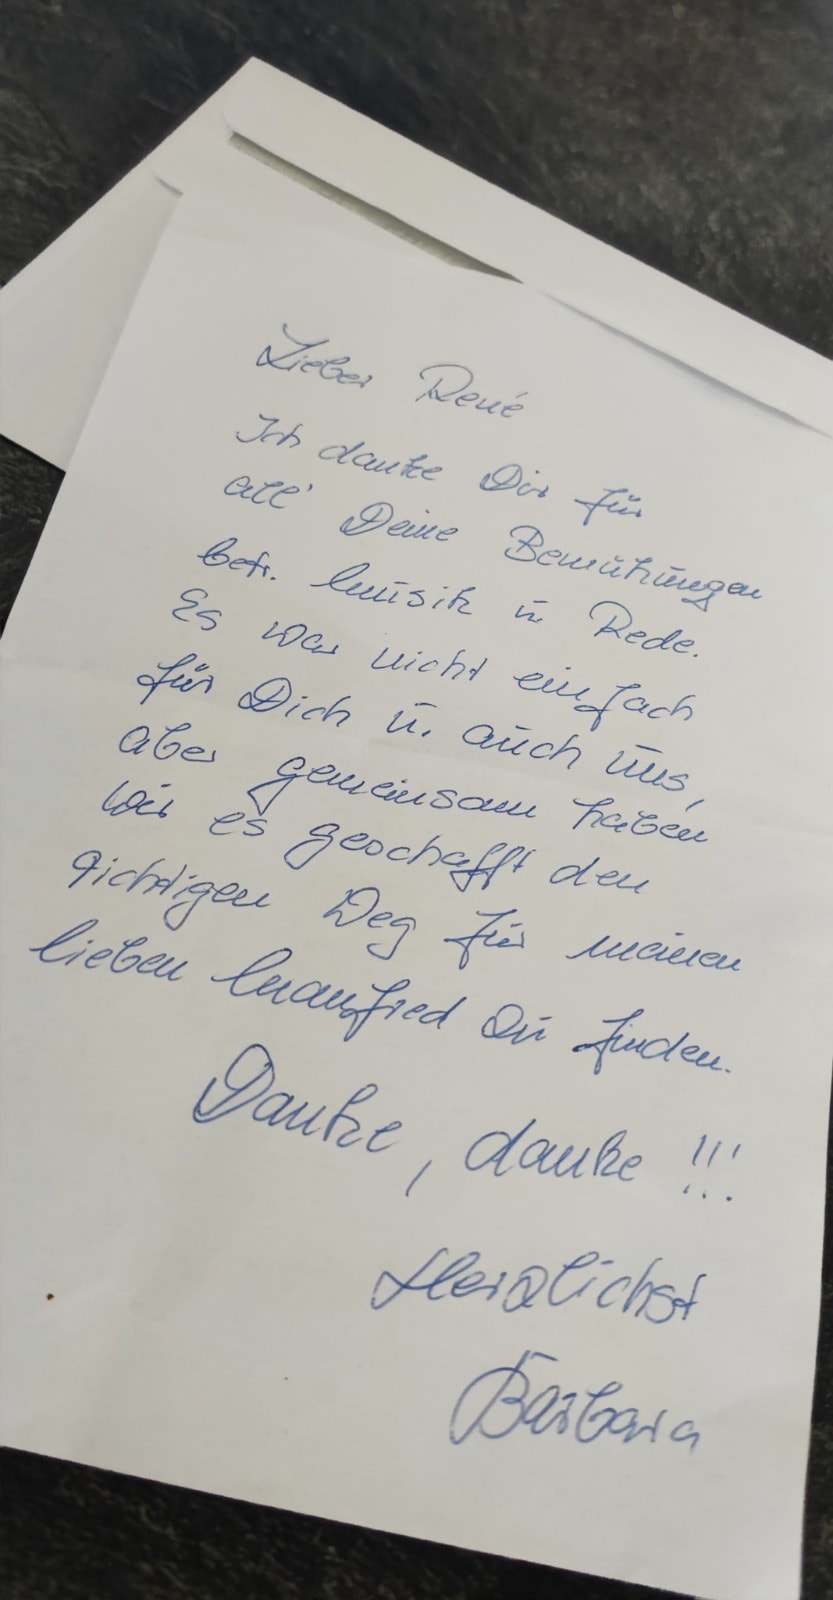 Lieber René
Ich danke Dir für
all' Deine Bemühungen
betr. Musik u. Rede.
Es war nicht einfach
für Dich u. auch uns,
aber gemeinsam haben
wir es geschafft den
richtigen Weg für meinen
lieben Manfried zu finden.
Danke, danke !!!
Herzlichst
Barbara